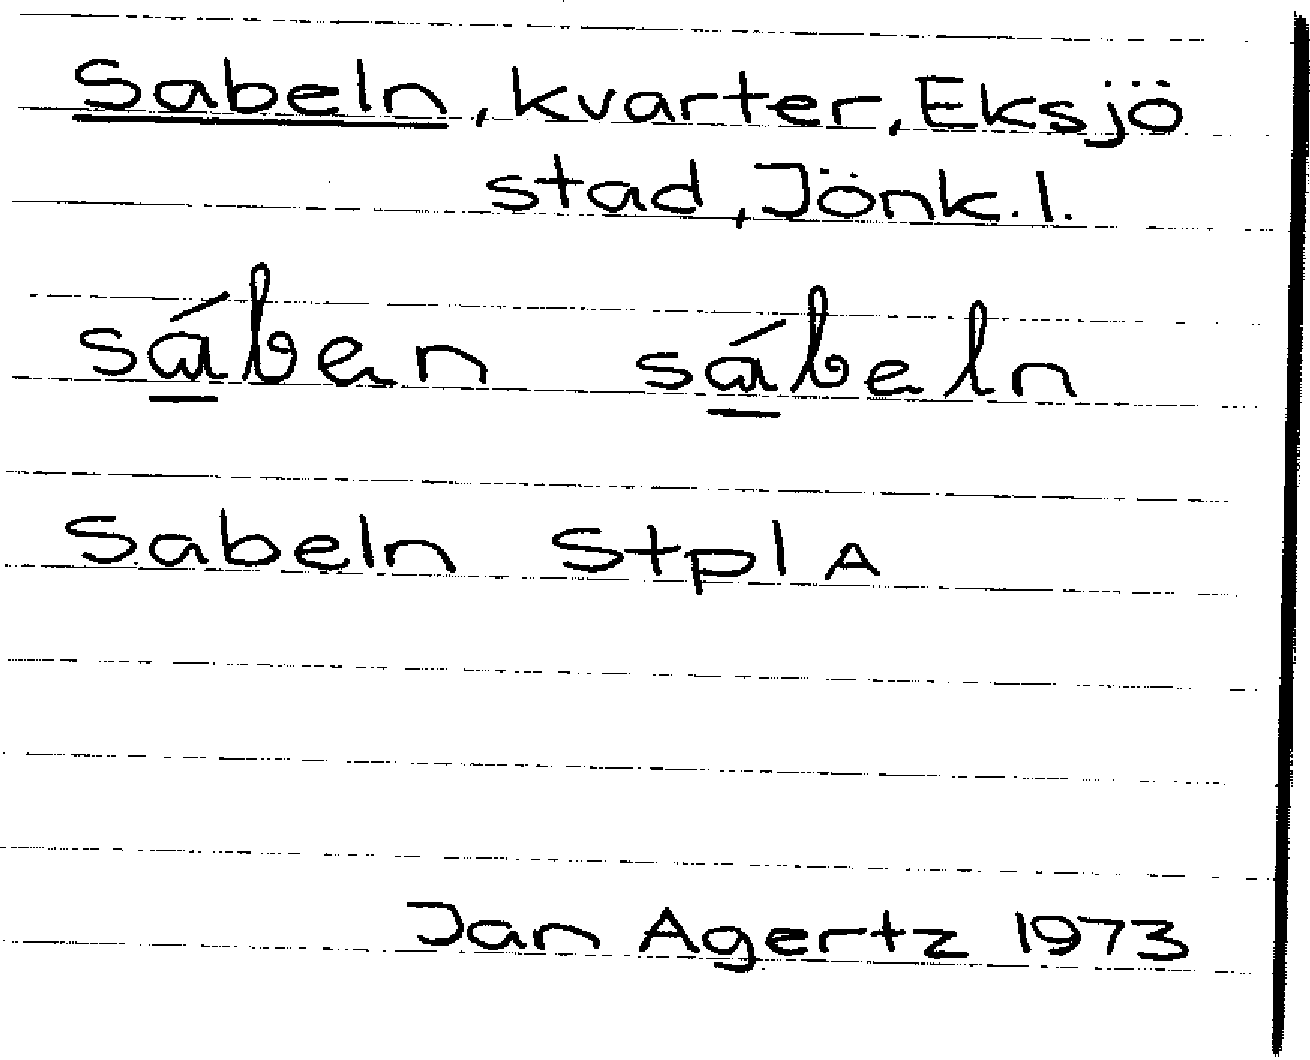 Sabeln, kvarter, Eksjö
stad, Jönk.l.
sá̱ben sá̱beln
Sabeln Stpl A
Jan Agertz 1973